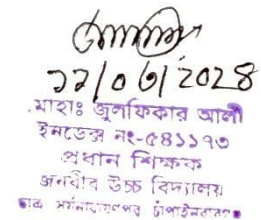 ১১/০৩/২০২৪
মোহাঃ জুলফিকার আলী
ইনডেক্স নং-৫৪১১৭৩
প্রধান শিক্ষক
উচ্চ বিদ্যালয়
চাঁপাইনবাবগঞ্জ